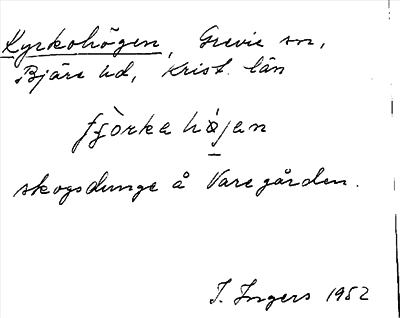 Kyrkohögen, Grevie sn,
Bjäre hd, Krist. län
fjòrkahǿjan
skogsdunge å Varegården.
I. Ingers 1952